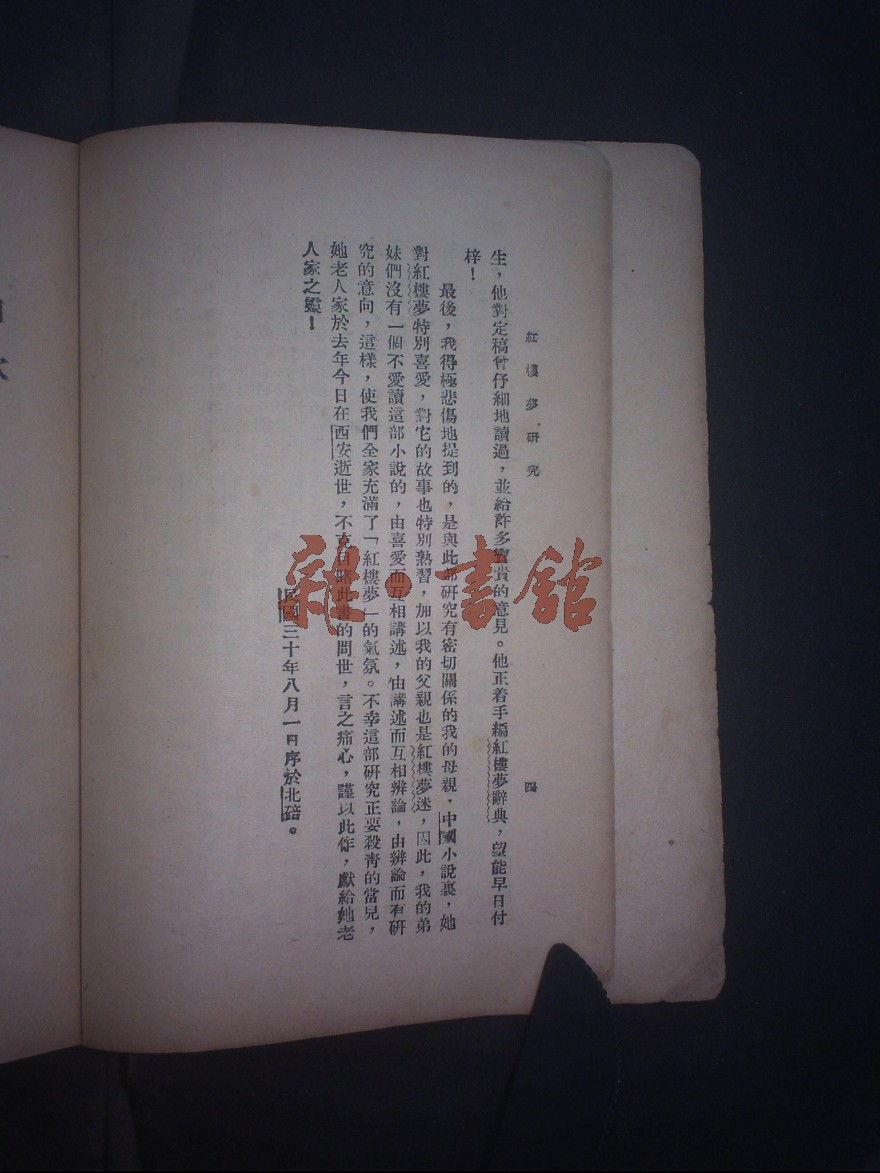 紅樓夢研究
四
生，他對定稿曾仔細地讀過，並給許多寶貴的意見。他正着手編紅樓夢辭典，望能早日付
梓！
最後，我得極悲傷地提到的，是與此部研究有密切關係的我的母親，中國小說裏，她
對紅樓夢特別喜愛，對它的故事也特別熟習，加以我的父親也是紅樓夢迷，因此，我的弟
妹們沒有一個不愛讀這部小說的，由喜愛而互相講述，由講述而互相辨論，由辨論而有研
究的意向，這樣，使我們全家充滿了「紅樓夢」的氣氛。不幸這部研究正要殺靑的當兒，
她老人家於去年今日在西安逝世，不克目睹此書的問世，言之痛心，謹以此作，獻給她老
人家之靈！
民國三十年八月一日序於北碚。
雜·書館